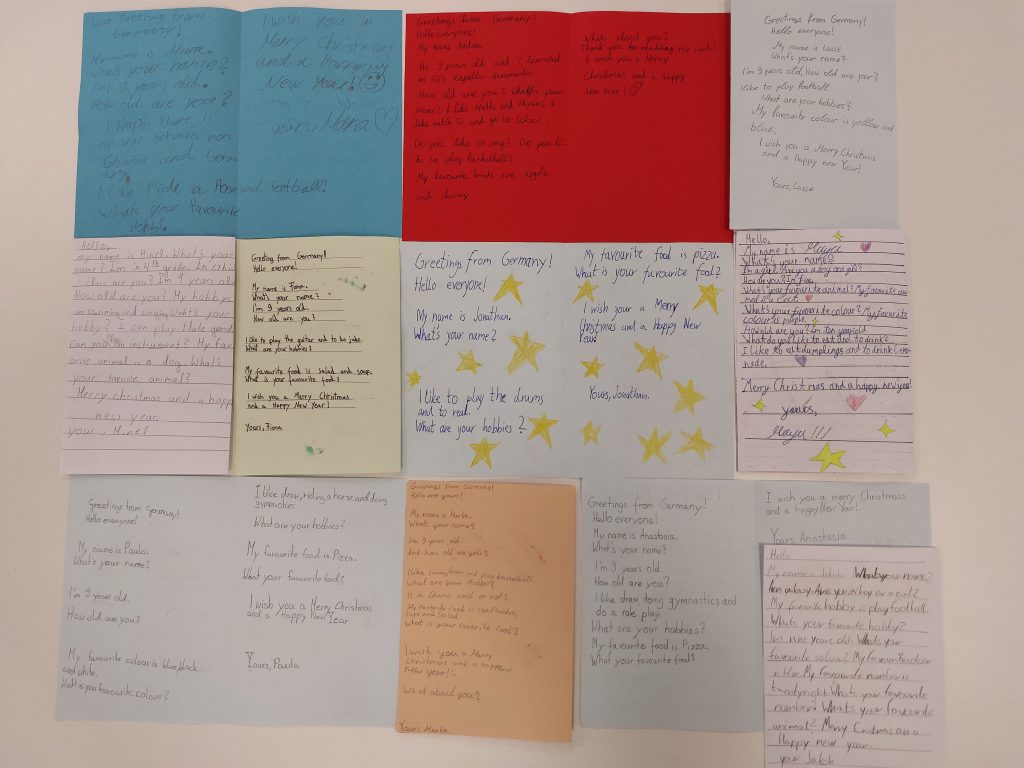 Love Greetings from
Germany!
My name is Mara.
Whats your name?
I'm 9 years old.
How old are you?
I Hope there is
no war between
Ghana and Germ
any.
I like Ride a Horse and football!
Whats your favourite
I wish you a
Merry Christmas
and a happy
New Year!
yours, Mara
Greetings from Germany!
Hello everyone!
My name Anton
9 years old and I learned
in GGS Kapella-
How old are you? Whats your
Name? I like Mathe and I
like watch Tv and go to school.
Do you like to sing? Do you li
ke to play basketball?
My favourite are apple
and cherry
Whats about you?
Thank you for reading my card!
I wish you a Merry
Christmas and a Happy
New Year!
Greetings from Germany!
Hello everyone!
My name is Lasse
What's your name?
I'm 9 years old, How old are you?
I like to play football
What are your hobbies?
My favourite colour is yellow and
blue.
I wish you a Merry Christmas
and a Happy new Year!
Yours, Lasse
Hello,
my name is Minel. What's your
name? I'm in 4th grade. In
are you? I'm 9 years old
How old are you? My hobbys
are swimming and singing. What's your
hobby? I can play Flute
Can you instrument? My fav
animal is a dog. What's
your favorite animal?
Merry christmas and a happy
new year
your, Minel
Greeting from Germany!
Hello everyone!
My name is Fiona.
What's your name?
I'm 9 years old.
How old are you?
I like to play the guitar and to
What are your hobbies?
My favourite food is salad and soup.
What is your favourite food?
I wish you a Merry Christmas
and a Happy New Year!
Yours, Fiona
Greetings from Germany!
Hello everyone!
My name is Jonathan.
What's your name?
I like to play the drums
and to read.
What are your hobbies?
My favourite food is pizza.
What is your favourite food?
I wish you a Merry
Christmas and a Happy New
Year
Yours, Jonathan.
Hello,
My name is Maya
What's your name?
I'm a girl. Are you a boy and girl?
How are you? I'm fine.
What's your favourite animal? My favourite ani-
mal is a cat.
What's your favourite colour? My favourite
colour is purple.
How old are you? I'm ten years old
What do you like to eat and to drink?
I like to eat dumplings and to drink lemo-
nade.
Merry Christmas and a happy new year!
yours,
Maya!!!
Greetings from Germany!
Hello everyone!
My name is Paula.
What's your name?
I'm 9 years old.
How old are you?
My favourite colour is blue, black
and white.
your favourite colour?
I like draw, riding a horse and doing
gymnastics
What are your hobbies?
My favourite food is Pizza.
What your favourite food?
I wish you a Merry Christmas
and a Happy New Year
Yours, Paula
Greetings from Germany!
Hello
My name is Marta.
Whats your name?
I'm 9 years old.
And how old are you?
I like and play basketball.
What are your Hobbis?
Is in Ghana cool or hot?
My favorite food is
and Salad.
What is your favorite food?
I wish you a Merry
Christmas and a happy
new year!
What about you?
Yours Marta
Greetings from Germany!
Hello everyone!
My name is Anastasia.
What's your name?
I'm 9 years old.
How old are you?
I like draw, doing gymnastics and
do a role play.
What are your hobbies?
My favourite food is Pizza.
What your favourite food?
I wish you a merry Christmass
and a happy New Year!
Yours, Anastasia
Hello
My name is What's your name?
a boy Are you a boy or a girl?
My favourite hobby is play football.
Whats your favourite hobby?
I'm nine years old. Whats your
favourite colour? My favourite colour
is blue. My favourite number is
twentyeight. Whats your favourite
number? What's your favourite
animal? Merry Cristmas an a
Happy new year.
your Jakob